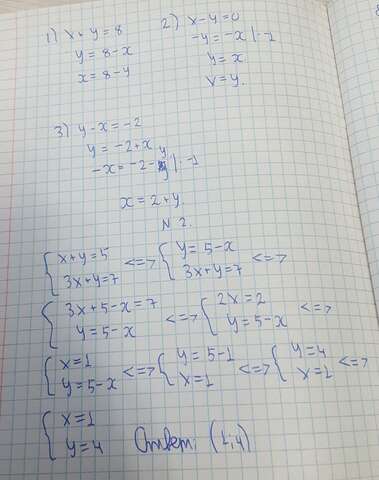 1) x + y = 8
y = 8 - x
x = 8 - y
2) x - y = 0
-y = -x | : -1
y = x
x = y.
3) y - x = -2
y = -2 + x
-x = -2 - y | : -1
x = 2 + y.
N 2.
{ x + y = 5 <=> { y = 5 - x <=>
3x + y = 7 3x + y = 7
{ 3x + 5 - x = 7 <=> { 2x = 2 <=>
y = 5 - x y = 5 - x
{ x = 1 <=> { y = 5 - 1 <=> { y = 4 <=>
y = 5 - x x = 1 x = 1
{ x = 1
y = 4 Ответ: (1, 4)